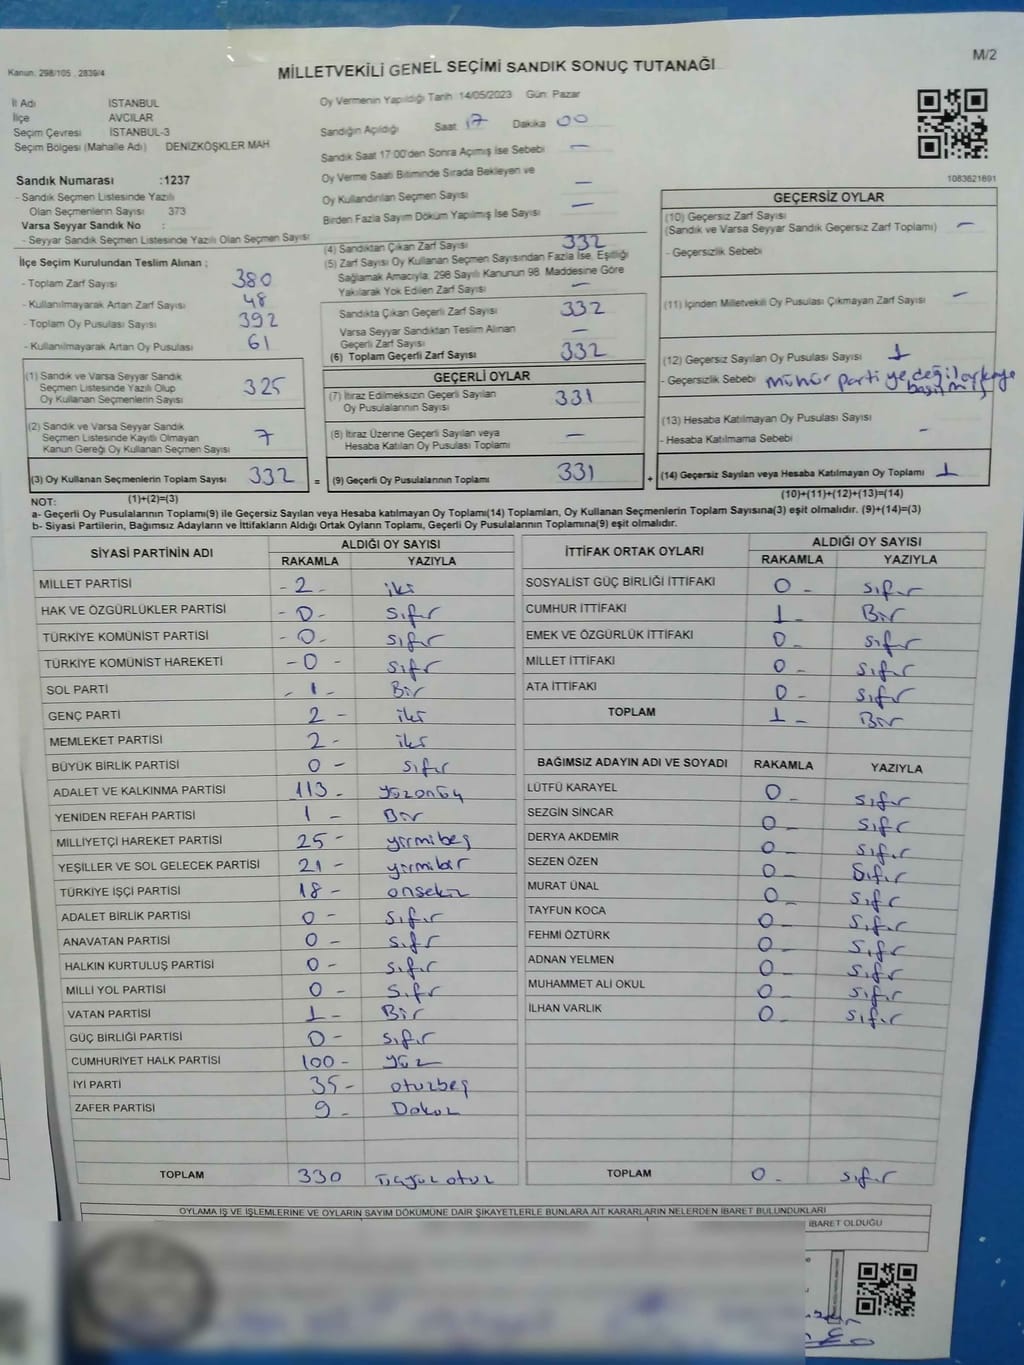 Kanun: 298/105 , 2839/4
MİLLETVEKİLİ GENEL SEÇİMİ SANDIK SONUÇ TUTANAĞI
M/2
İl Adı İSTANBUL
İlçe AVCILAR
Seçim Çevresi İSTANBUL-3
Seçim Bölgesi (Mahalle Adı) DENİZKÖŞKLER MAH
Sandık Numarası :1237
- Sandık Seçmen Listesinde Yazılı
Olan Seçmenlerin Sayısı 373
Varsa Seyyar Sandık No :
- Seyyar Sandık Seçmen Listesinde Yazılı Olan Seçmen Sayısı
İlçe Seçim Kurulundan Teslim Alınan ;
- Toplam Zarf Sayısı 380
- Kullanılmayarak Artan Zarf Sayısı 48
- Toplam Oy Pusulası Sayısı 392
- Kullanılmayarak Artan Oy Pusulası 61
(1) Sandık ve Varsa Seyyar Sandık
Seçmen Listesinde Yazılı Olup
Oy Kullanan Seçmenlerin Sayısı 325
(2) Sandık ve Varsa Seyyar Sandık
Seçmen Listesinde Kayıtlı Olmayan
Kanun Gereği Oy Kullanan Seçmen Sayısı 7
(3) Oy Kullanan Seçmenlerin Toplam Sayısı 332 =
Oy Vermenin Yapıldığı Tarih 14/05/2023 Gün: Pazar
Sandığın Açıldığı Saat 17 Dakika 00
Sandık Saat 17:00'den Sonra Açımış İse Sebebi —
Oy Verme Saati Bitiminde Sırada Bekleyen ve
Oy Kullandırılan Seçmen Sayısı —
Birden Fazla Sayım Döküm Yapılmış İse Sayısı —
(4) Sandıktan Çıkan Zarf Sayısı 332
(5) Zarf Sayısı Oy Kullanan Seçmen Sayısından Fazla İse, Eşitliği
Sağlamak Amacıyla; 298 Sayılı Kanunun 98. Maddesine Göre
Yakılarak Yok Edilen Zarf Sayısı —
Sandıkta Çıkan Geçerli Zarf Sayısı 332
Varsa Seyyar Sandıktan Teslim Alınan
Geçerli Zarf Sayısı —
(6) Toplam Geçerli Zarf Sayısı 332
GEÇERLİ OYLAR
(7) İtiraz Edilmeksizin Geçerli Sayılan
Oy Pusulalarının Sayısı 331
(8) İtiraz Üzerine Geçerli Sayılan veya
Hesaba Katılan Oy Pusulası Toplamı —
(9) Geçerli Oy Pusulalarının Toplamı 331 +
1083621691
GEÇERSİZ OYLAR
(10) Geçersiz Zarf Sayısı
(Sandık ve Varsa Seyyar Sandık Geçersiz Zarf Toplamı) —
- Geçersizlik Sebebi
(11) İçinden Milletvekili Oy Pusulası Çıkmayan Zarf Sayısı —
(12) Geçersiz Sayılan Oy Pusulası Sayısı 1
- Geçersizlik Sebebi mühür partiye değil arkaya
basılmış
(13) Hesaba Katılmayan Oy Pusulası Sayısı —
- Hesaba Katılmama Sebebi
(14) Geçersiz Sayılan veya Hesaba Katılmayan Oy Toplamı 1
NOT: (1)+(2)=(3) (10)+(11)+(12)+(13)=(14)
a- Geçerli Oy Pusulalarının Toplamı(9) ile Geçersiz Sayılan veya Hesaba katılmayan Oy Toplamı(14) Toplamları, Oy Kullanan Seçmenlerin Toplam Sayısına(3) eşit olmalıdır. (9)+(14)=(3)
b- Siyasi Partilerin, Bağımsız Adayların ve İttifakların Aldığı Ortak Oyların Toplamı, Geçerli Oy Pusulalarının Toplamına(9) eşit olmalıdır.
SİYASİ PARTİNİN ADI ALDIĞI OY SAYISI
RAKAMLA YAZIYLA
MİLLET PARTİSİ - 2 - iki
HAK VE ÖZGÜRLÜKLER PARTİSİ - 0 - sıfır
TÜRKİYE KOMÜNİST PARTİSİ - 0 - sıfır
TÜRKİYE KOMÜNİST HAREKETİ - 0 - sıfır
SOL PARTİ - 1 - Bir
GENÇ PARTİ 2 - iki
MEMLEKET PARTİSİ 2 - iki
BÜYÜK BİRLİK PARTİSİ 0 - sıfır
ADALET VE KALKINMA PARTİSİ 113 -
YENİDEN REFAH PARTİSİ 1 - Bir
MİLLİYETÇİ HAREKET PARTİSİ 25 - yirmibeş
YEŞİLLER VE SOL GELECEK PARTİSİ 21 - yirmibir
TÜRKİYE İŞÇİ PARTİSİ 18 - onsekiz
ADALET BİRLİK PARTİSİ 0 - sıfır
ANAVATAN PARTİSİ 0 - sıfır
HALKIN KURTULUŞ PARTİSİ 0 - sıfır
MİLLİ YOL PARTİSİ 0 - sıfır
VATAN PARTİSİ 1 - Bir
GÜÇ BİRLİĞİ PARTİSİ 0 - sıfır
CUMHURİYET HALK PARTİSİ 100 - yüz
İYİ PARTİ 35 - otuzbeş
ZAFER PARTİSİ 9 - Dokuz
TOPLAM 330 üçyüz otuz
İTTİFAK ORTAK OYLARI ALDIĞI OY SAYISI
RAKAMLA YAZIYLA
SOSYALİST GÜÇ BİRLİĞİ İTTİFAKI 0 - sıfır
CUMHUR İTTİFAKI 1 - Bir
EMEK VE ÖZGÜRLÜK İTTİFAKI 0 - sıfır
MİLLET İTTİFAKI 0 - sıfır
ATA İTTİFAKI 0 - sıfır
TOPLAM 1 - Bir
BAĞIMSIZ ADAYIN ADI VE SOYADI RAKAMLA YAZIYLA
LÜTFÜ KARAYEL 0 - sıfır
SEZGİN SİNCAR 0 - sıfır
DERYA AKDEMİR 0 - sıfır
SEZEN ÖZEN 0 - sıfır
MURAT ÜNAL 0 - sıfır
TAYFUN KOCA 0 - sıfır
FEHMİ ÖZTÜRK 0 - sıfır
ADNAN YELMEN 0 - sıfır
MUHAMMET ALİ OKUL 0 - sıfır
İLHAN VARLIK 0 - sıfır
TOPLAM 0 - sıfır
OYLAMA İŞ VE İŞLEMLERİNE VE OYLARIN SAYIM DÖKÜMÜNE DAİR ŞİKAYETLERLE BUNLARA AİT KARARLARIN NELERDEN İBARET BULUNDUKLARI
İBARET OLDUĞU